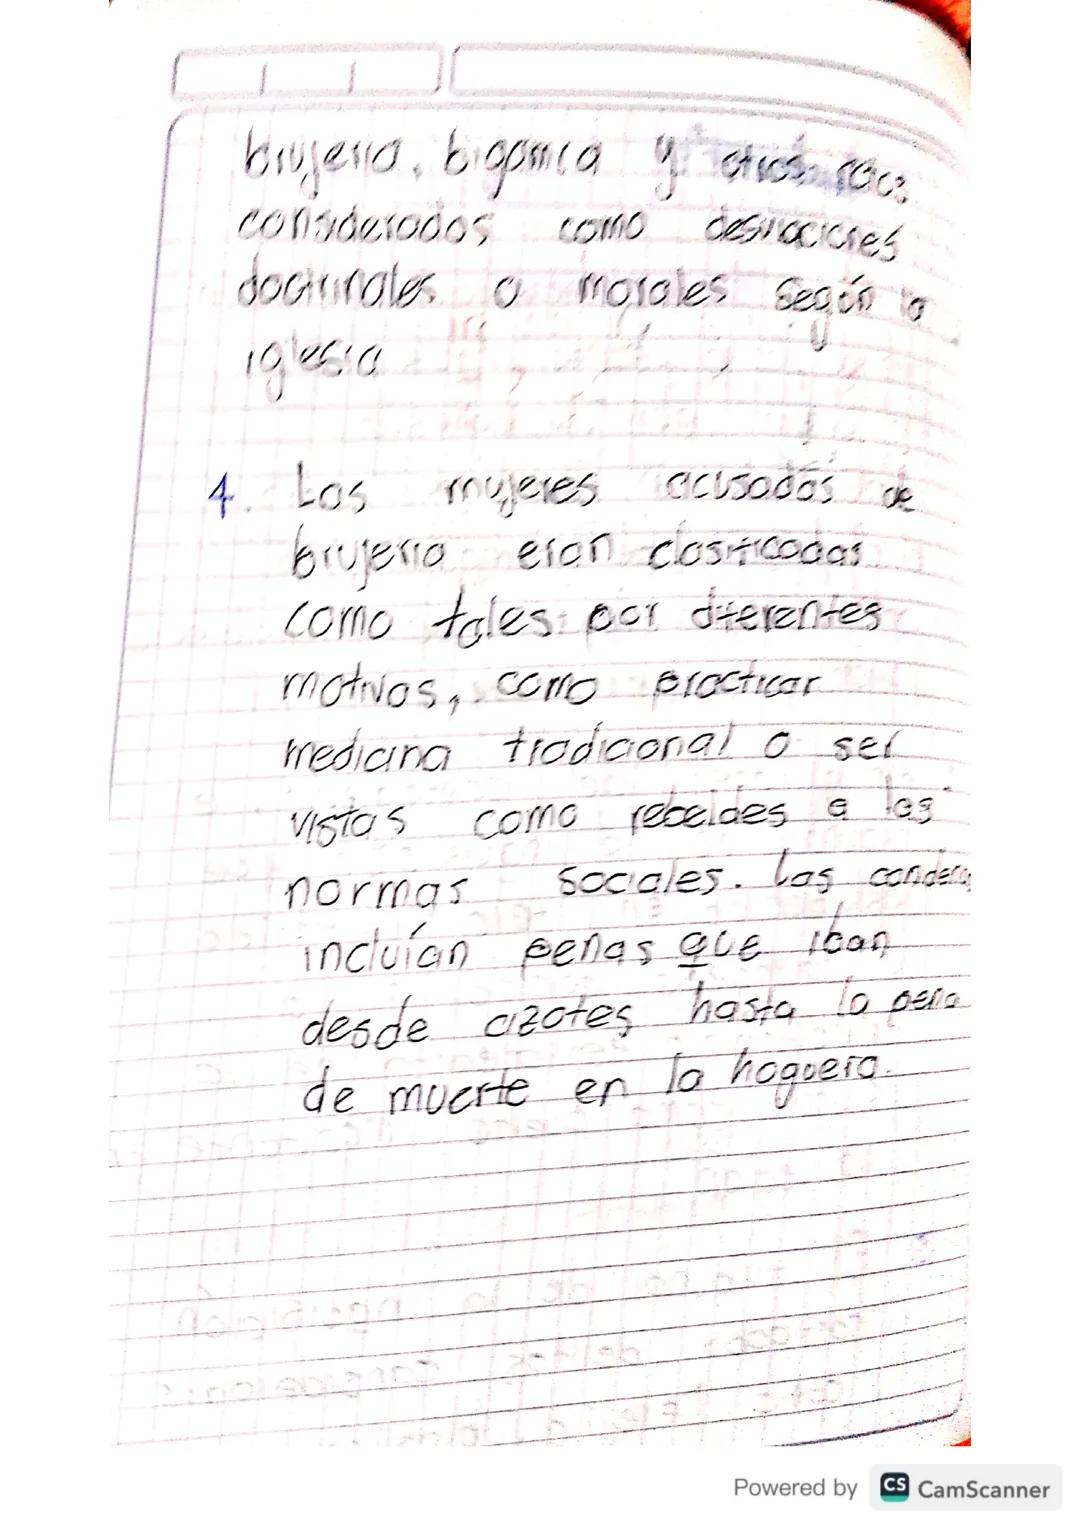 brujería, bigamia y otros
considerados como desviaciones
doctrinales o morales según la
iglesia
4. Las mujeres acusadas de
brujería eran clasificadas
como tales por diferentes
motivos, como practicar
medicina tradicional o ser
vistas como rebeldes a las
normas sociales. Las
incluían penas que iban
desde azotes hasta la pena
de muerte en la hoguera.
Powered by CS CamScanner